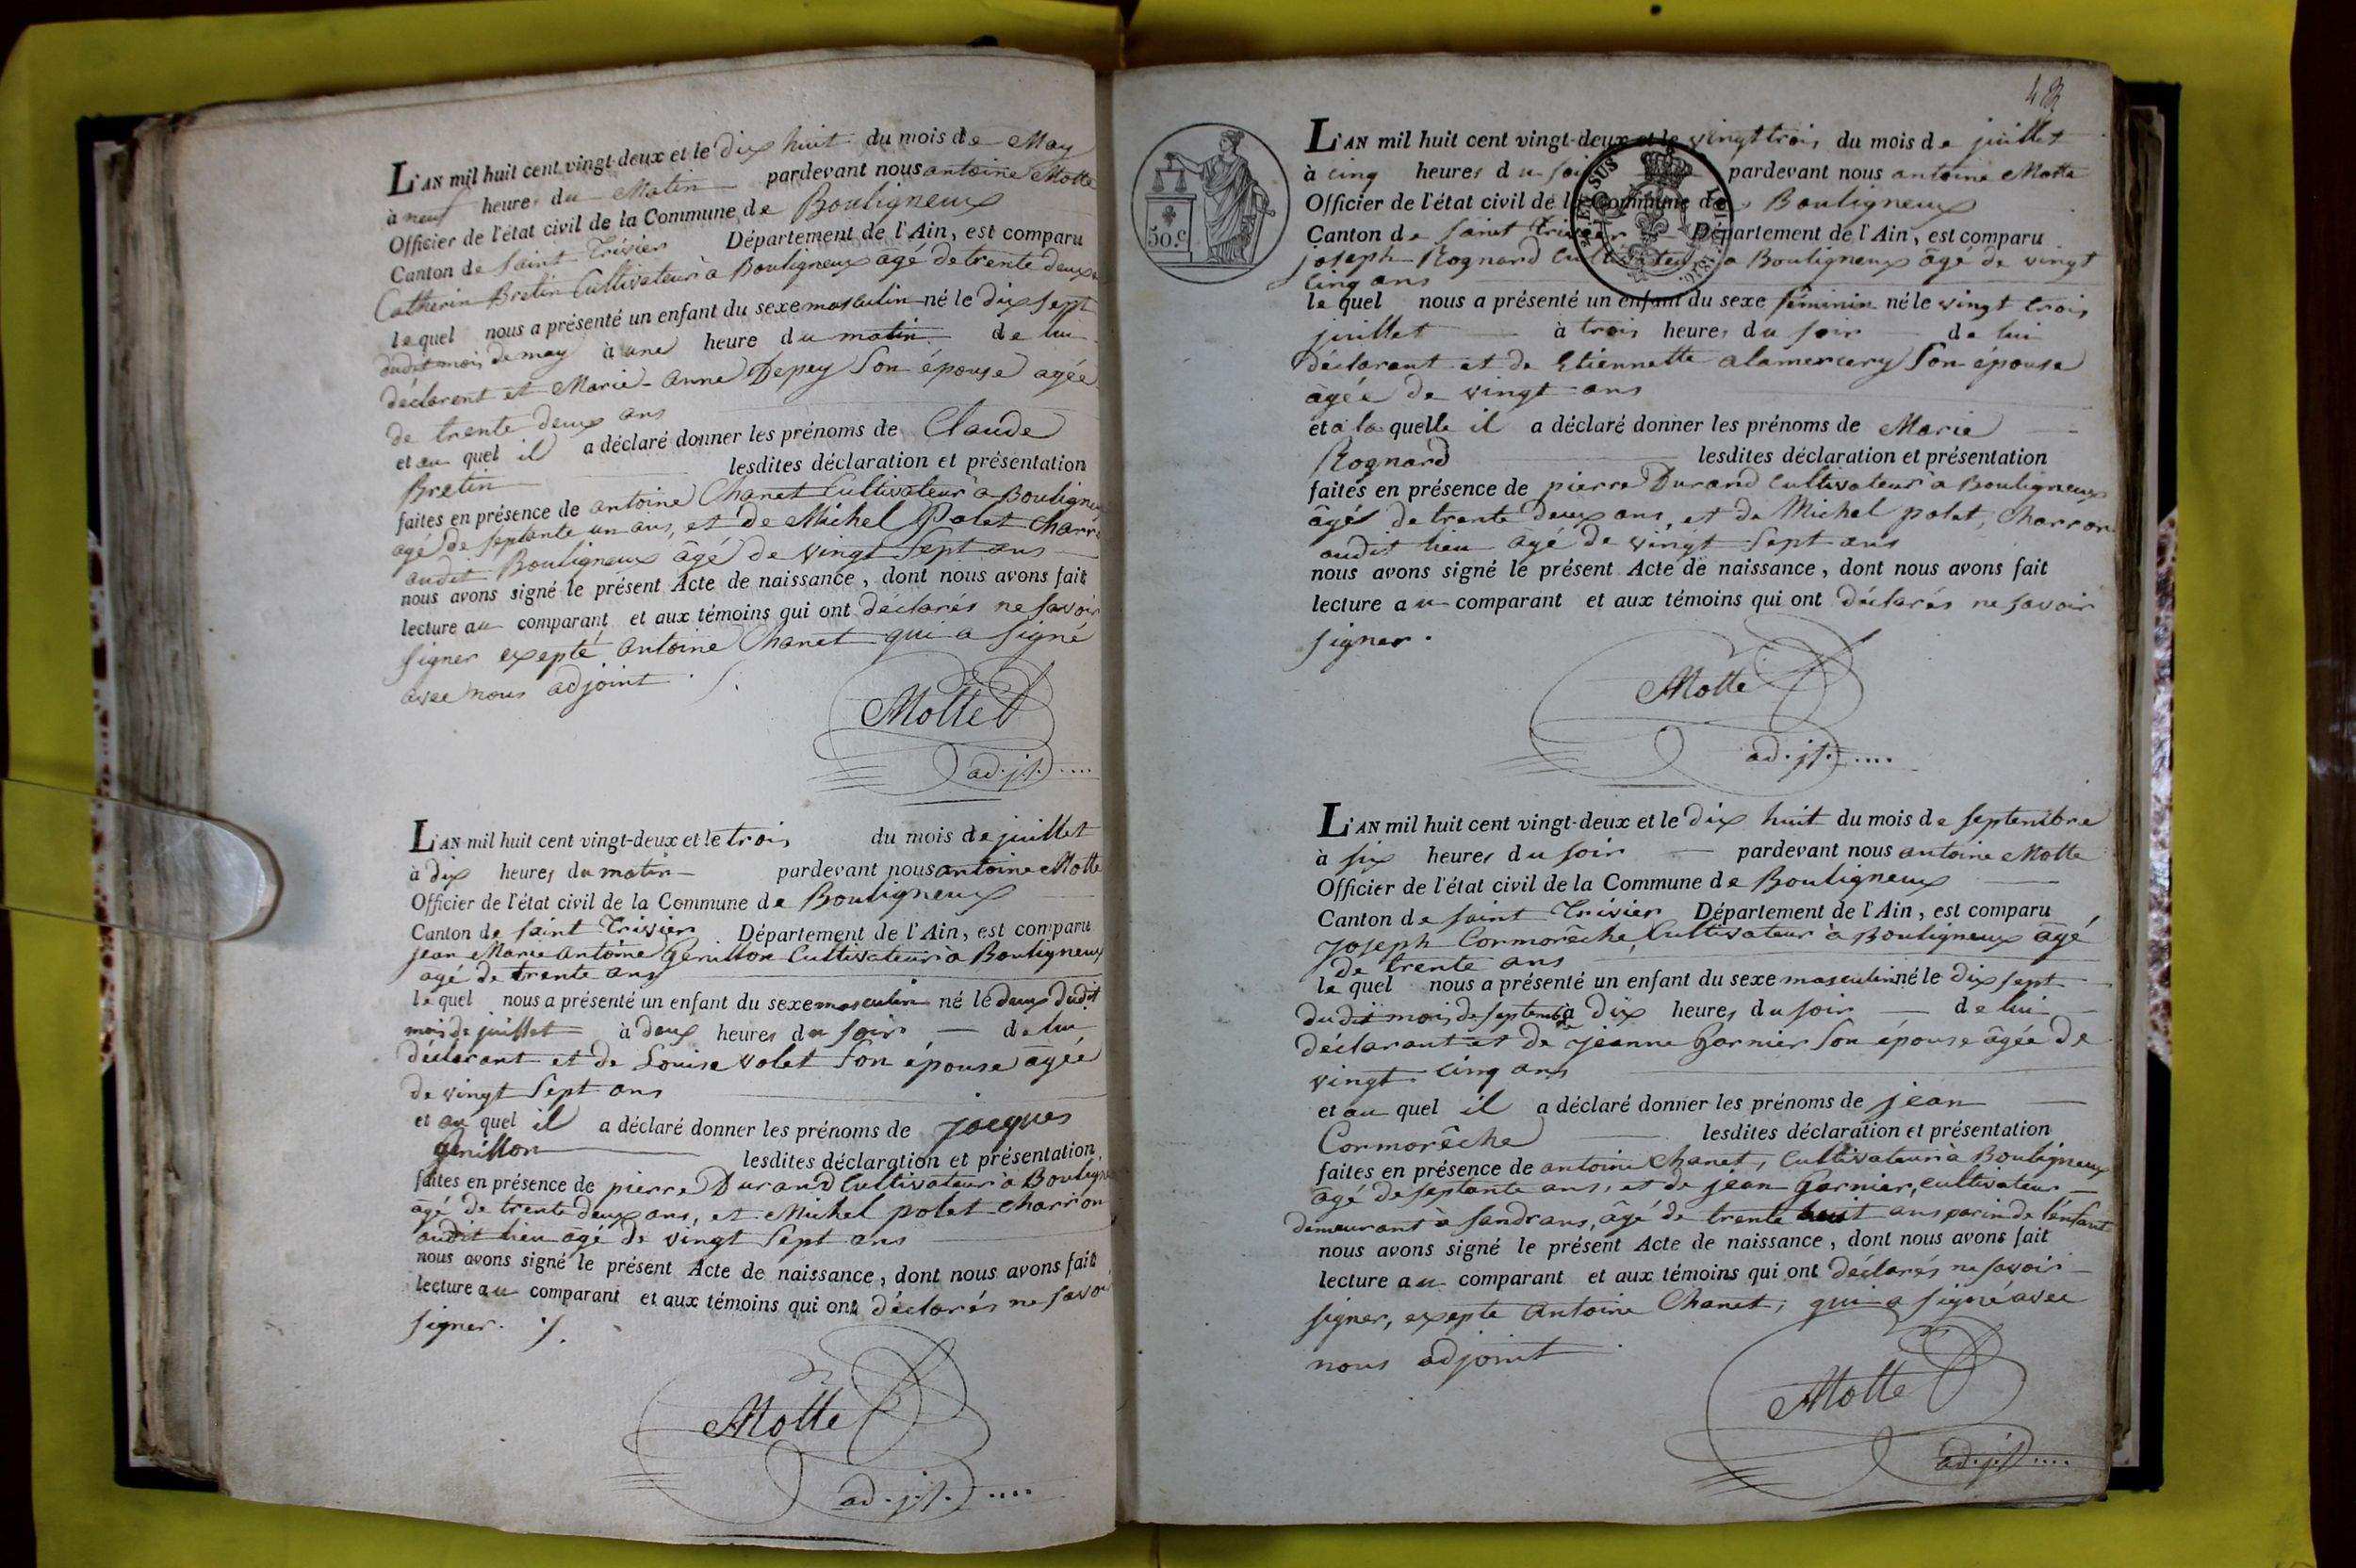 L'AN mil huit cent vingt-deux et le dix huit du mois de May
à neuf heures du Matin pardevant nous antoine Motte
Officier de l'état civil de la Commune de Bouligneux
Canton de saint Trivier Département de l'Ain, est comparu
Catherin Bretin Cultivateur à Bouligneux agé de trente deux
le quel nous a présenté un enfant du sexe masculin né le Dix sept
dudit mois de may à une heure du matin de lui
déclarent et Marie-Anne Depey Son épouse agée
de trente deux ans
et au quel il a déclaré donner les prénoms de Claude
Bretin lesdites déclaration et présentation
faites en présence de antoine Chanet Cultivateur à Bouligneux
agé de septante un ans, et de Michel Polet Charr
audit Bouligneux âgé de vingt Sept ans
nous avons signé le présent Acte de naissance, dont nous avons fait
lecture au comparant et aux témoins qui ont déclarés ne savoir
signer exepté antoine Chanet qui a signé
avec nous adjoint ./.
Motte
ad.jt.....
L'AN mil huit cent vingt-deux et le trois du mois de juillet
à dix heures du matin pardevant nous antoine Motte
Officier de l'état civil de la Commune de Bouligneux
Canton de saint Trivier Département de l'Ain, est comparu
jean Marie antoine Genillon Cultivateur à Bouligneux
agé de trente ans
le quel nous a présenté un enfant du sexe masculin né le deux dudit
mois de juillet à deux heures du soir de lui
déclarant et de Louise volet Son épouse agée
de vingt Sept ans
et au quel il a déclaré donner les prénoms de jacques
Genillon lesdites déclaration et présentation
faites en présence de pierre Durand Cultivateur à Boulign
agé de trente deux ans, et Michel polet charron
audit lieu agé de vingt Sept ans
nous avons signé le présent Acte de naissance, dont nous avons fait
lecture au comparant et aux témoins qui ont déclarés ne savoi
signer. ./.
Motte
ad.jt.....
L'AN mil huit cent vingt-deux et le vingt trois du mois de juillet
à cinq heures du soir pardevant nous antoine Motte
Officier de l'état civil de la Commune de Bouligneux
50.c
Canton de saint Trivier Département de l'Ain, est comparu
joseph Rognard Cultivateur à Bouligneux âgé de vingt
cinq ans
le quel nous a présenté un enfant du sexe féminin né le vingt trois
juillet à trois heures du soir de lui
déclarant et de Etiennette alamercery Son épouse
âgée de vingt ans
et à la quelle il a déclaré donner les prénoms de Marie
Rognard lesdites déclaration et présentation
faites en présence de pierre Durand Cultivateur à Bouligneux
âgé de trente deux ans, et de Michel polet, Charron
audit lieu âgé de vingt Sept ans
nous avons signé le présent Acte de naissance, dont nous avons fait
lecture au comparant et aux témoins qui ont déclarés ne savoir
signer.
Motte
ad.jt.....
L'AN mil huit cent vingt-deux et le dix huit du mois de septembre
à six heures du soir pardevant nous antoine Motte
Officier de l'état civil de la Commune de Bouligneux
Canton de saint Trivier Département de l'Ain, est comparu
Joseph Cormorêche, Cultivateur à Bouligneux âgé
de trente ans
le quel nous a présenté un enfant du sexe masculin né le dix sept
dudit mois de septembre à dix heures du soir de lui
déclarant et de jeanne Garnier Son épouse âgée de
vingt cinq ans
et au quel il a déclaré donner les prénoms de jean
Cormorêche lesdites déclaration et présentation
faites en présence de antoine Chanet, Cultivateur à Bouligneux
âgé de septante ans, et de jean Garnier, cultivateur
demeurant à Sandrans, âgé de trente huit ans parin de l'enfant
nous avons signé le présent Acte de naissance, dont nous avons fait
lecture au comparant et aux témoins qui ont déclarés ne savoir
signer, exepte antoine Chanet, qui a signé avec
nous adjoint
Motte
ad.jt.....